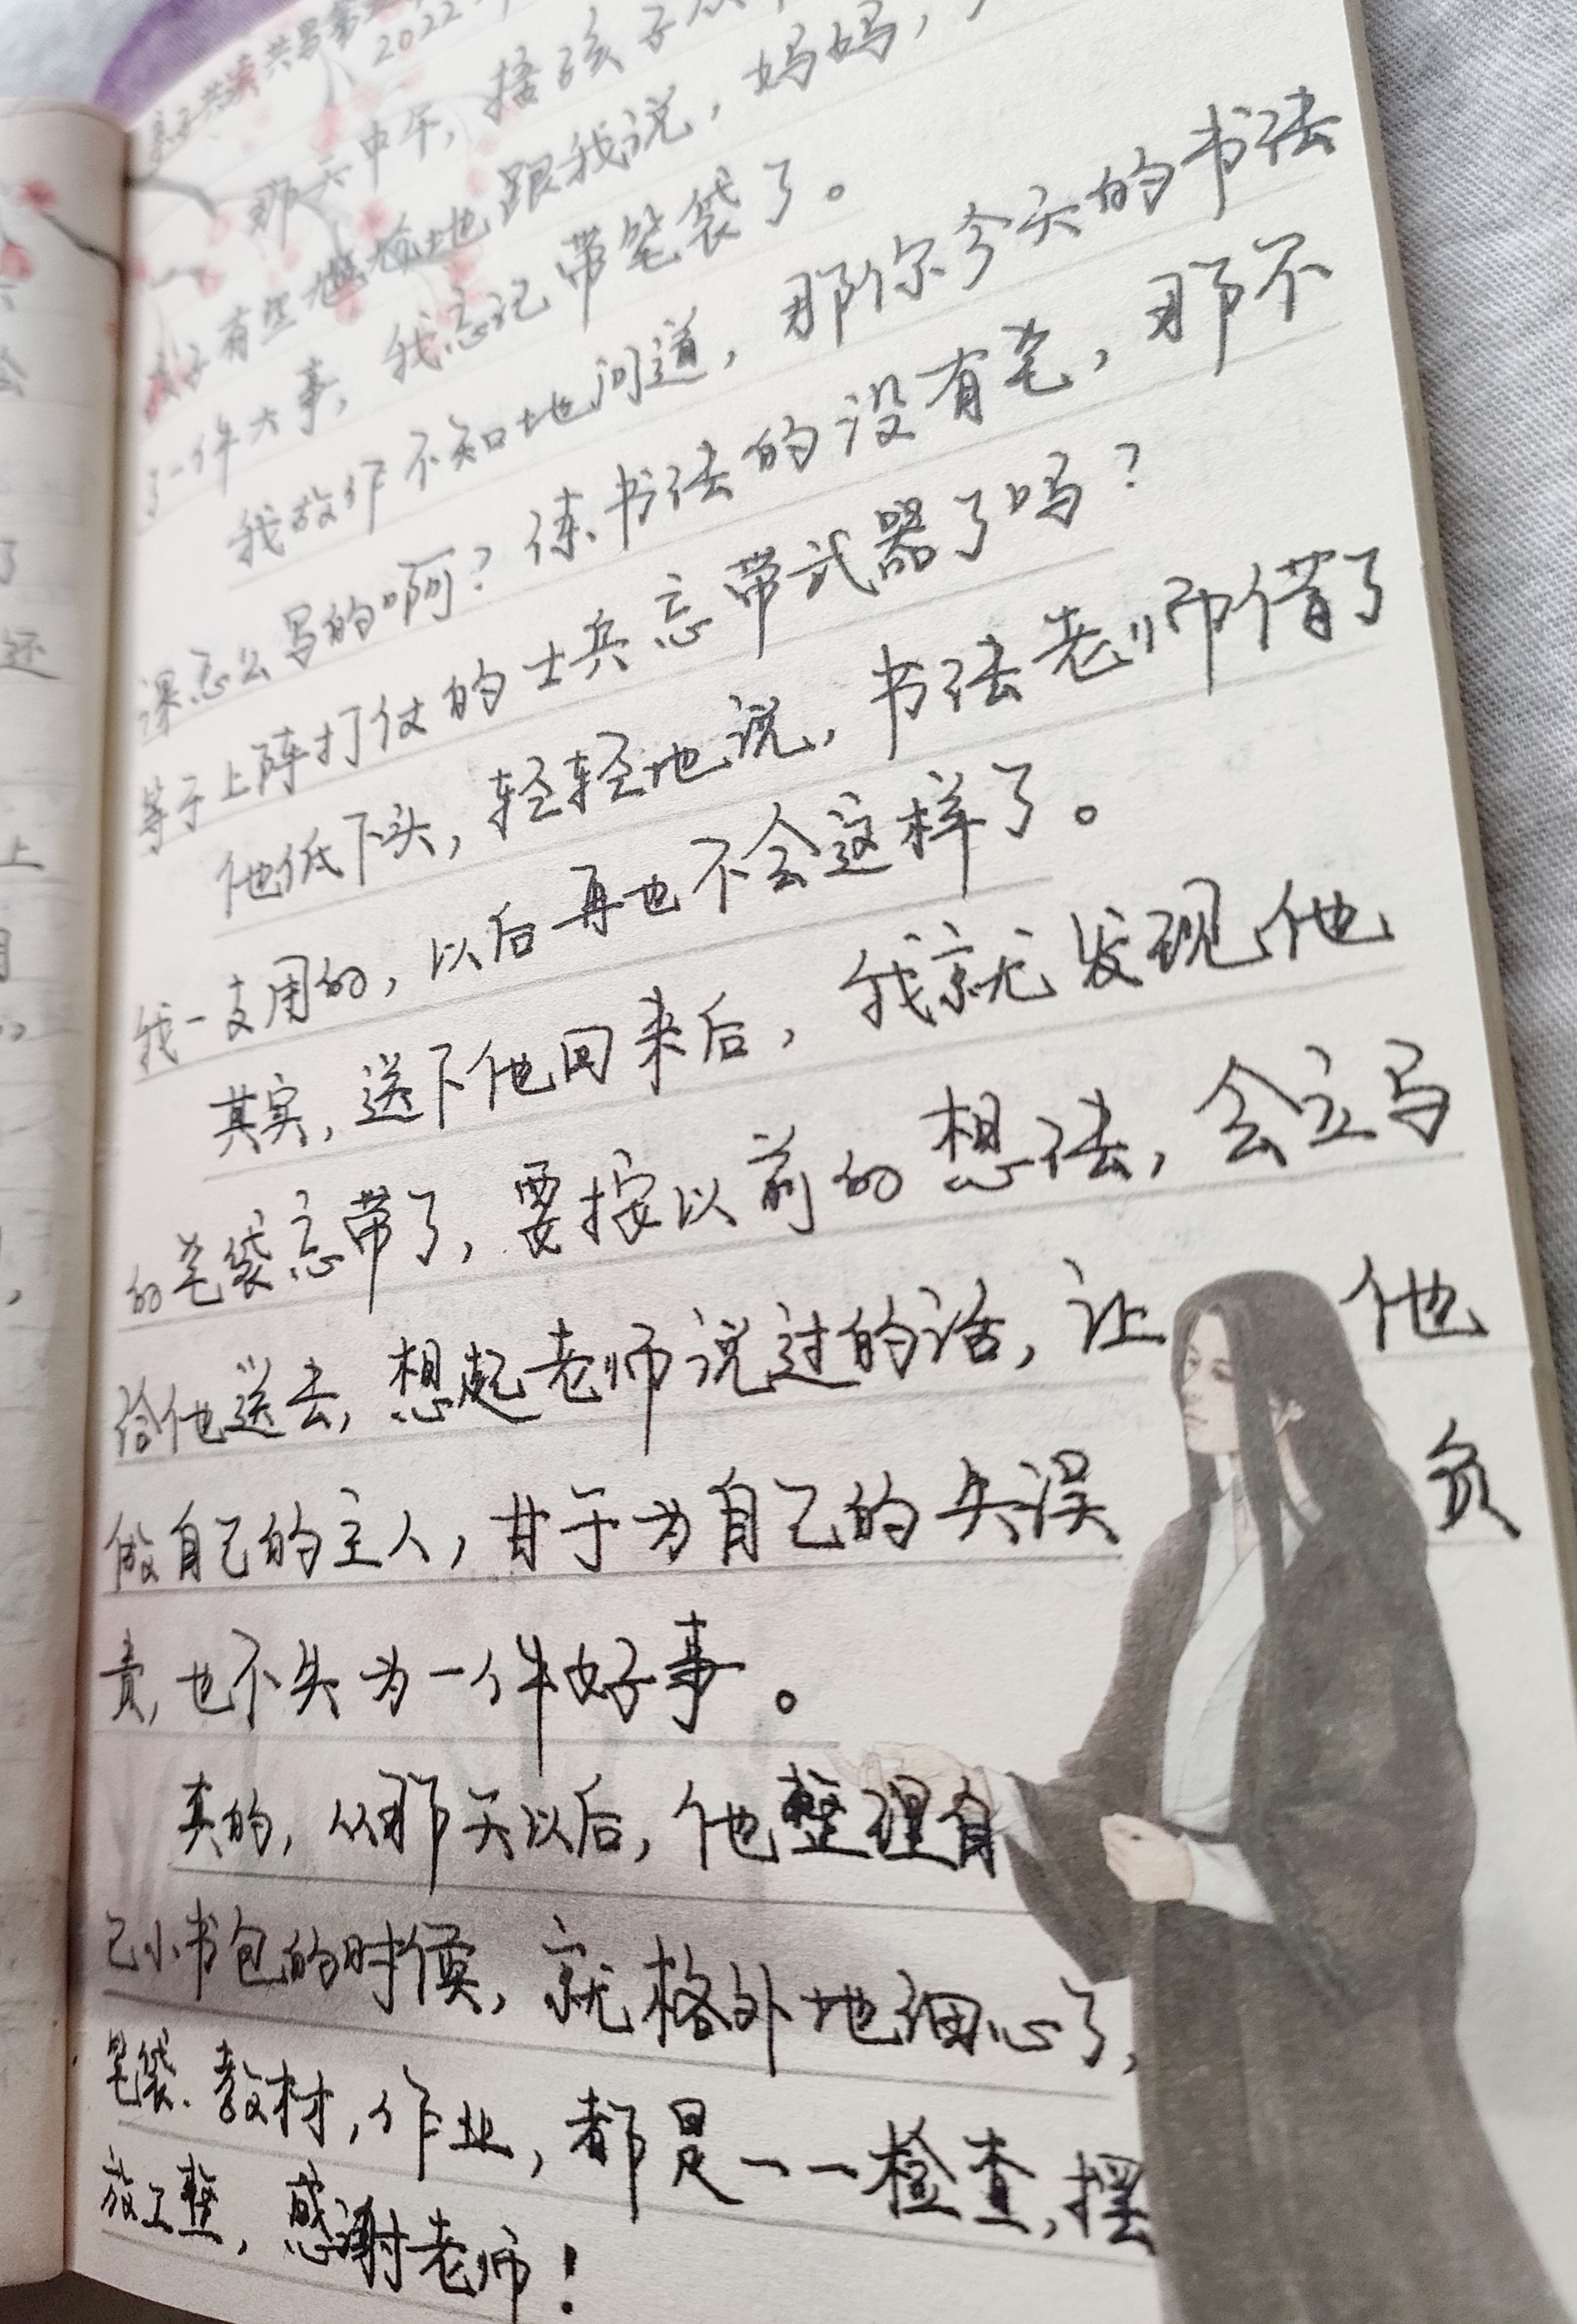 亲子共读共写第
2022年
那天中午，接孩子
有些尴尬地跟我说，妈妈，
了一件大事，我忘记带笔袋了。
我故作不知地问道，那你今天的书法
课怎么写的啊？练书法的没有笔，那不
等于上阵打仗的士兵忘带武器了吗？
他低下头，轻轻地说，书法老师借了
我一支用的，以后再也不会这样了。
其实，送下他回来后，我就发现他
的笔袋忘带了，要按以前的想法，会立马
给他送去，想起老师说过的话，让他
做自己的主人，甘于为自己的失误负
责，也不失为一件好事。
真的，从那天以后，他整理自
己小书包的时候，就格外地细心了，
笔袋、教材，作业，都是一一检查，摆
放工整，感谢老师！